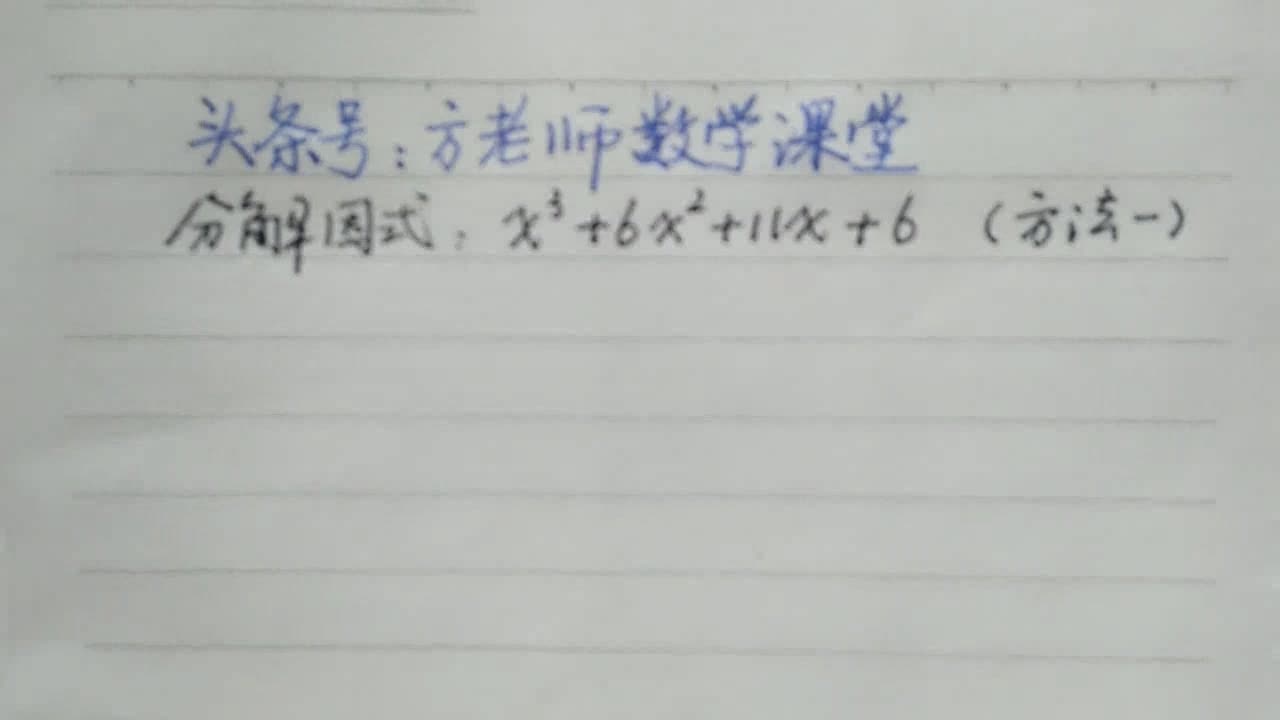 头条号：方老师数学课堂
分解因式：x³+6x²+11x+6 （方法一）